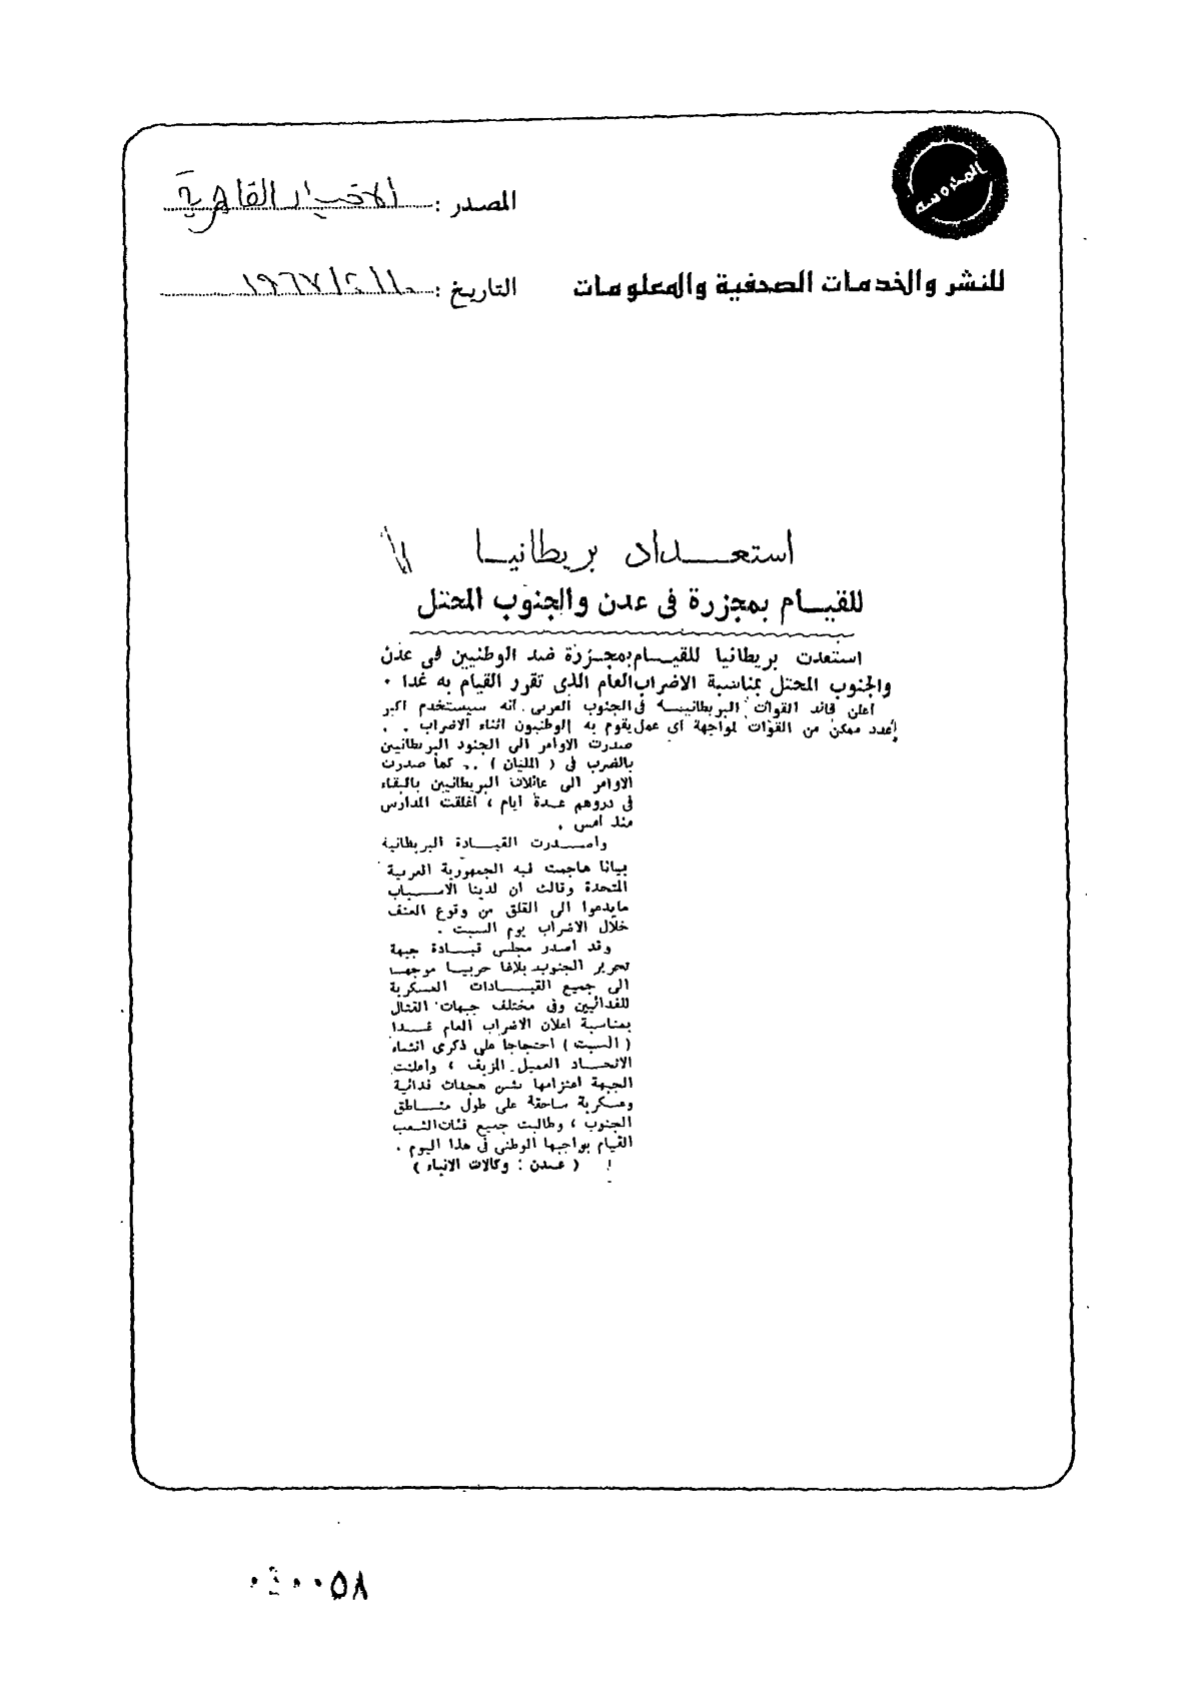 المحروسة
المصدر : الاخبار القاهرية
للنشر والخدمات الصحفية والمعلومات
التاريخ : ١٩٦٧/٢/١٠
استعداد بريطانيا
للقيام بمجزرة فى عدن والجنوب المحتل
استعدت بريطانيا للقيام بمجزرة ضد الوطنيين فى عدن
والجنوب المحتل بمناسبة الاضراب العام الذى تقرر القيام به غدا .
اعلن قائد القوات البريطانية فى الجنوب العربى انه سيستخدم اكبر
عدد ممكن من القوات لمواجهة اى عمل يقوم به الوطنيون اثناء الاضراب . .
صدرت الاوامر الى الجنود البريطانيين
بالضرب فى ( المليان ) .. كما صدرت
الاوامر الى عائلات البريطانيين بالبقاء
فى دورهم عدة ايام ، اغلقت المدارس
منذ امس .
واصدرت القيادة البريطانية
بيانا هاجمت فيه الجمهورية العربية
المتحدة وقالت ان لدينا الاسباب
مايدعوا الى القلق من وقوع العنف
خلال الاضراب يوم السبت .
وقد اصدر مجلس قيادة جبهة
تحرير الجنوب بلاغا حربيا موجها
الى جميع القيادات العسكرية
للفدائيين وفى مختلف جبهات القتال
بمناسبة اعلان الاضراب العام غدا
( السبت ) احتجاجا على ذكرى انشاء
الاتحاد العميل المزيف ، واعلنت
الجبهة اعتزامها شن هجمات فدائية
وعسكرية ساحقة على طول مناطق
الجنوب ، وطالبت جميع فئات الشعب
القيام بواجبها الوطنى فى هذا اليوم .
( عدن : وكالات الانباء )
٠٤٠٠٥٨